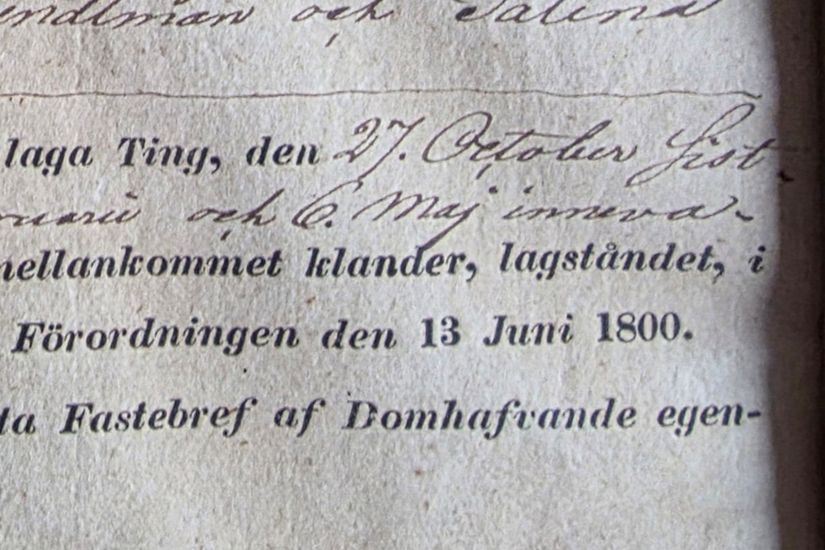 och
laga Ting, den 27. October sist
och 6. Maj inneva-
mellankommet klander, lagståndet, i
Förordningen den 13 Juni 1800.
ta Fastebref af Domhafvande egen-